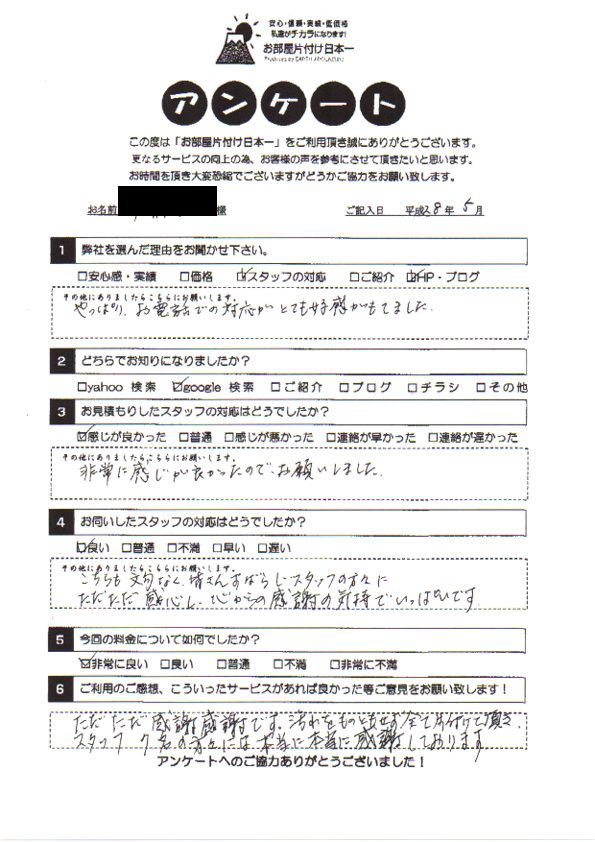 安心・信頼・実績・低価格
私達がチカラになります!
お部屋片付け日本一
アンケート
この度は「お部屋片付け日本一」をご利用頂き誠にありがとうございます。
更なるサービスの向上の為、お客様の声を参考にさせて頂きたいと思います。
お時間を頂き大変恐縮でございますがどうかご協力をお願い致します。
お名前 様 ご記入日 平成28年5月
1 弊社を選んだ理由をお聞かせ下さい。
□安心感・実績 □価格 ☑スタッフの対応 □ご紹介 ☑HP・ブログ
その他にありましたらこちらにお願いします。
やっぱり、お電話での対応がとても好感がもてました。
2 どちらでお知りになりましたか?
□yahoo 検索 ☑google 検索 □ご紹介 □ブログ □チラシ □その他
3 お見積もりしたスタッフの対応はどうでしたか?
☑感じが良かった □普通 □感じが悪かった □連絡が早かった □連絡が遅かった
その他にありましたらこちらにお願いします。
非常に感じが良かったので、お願いしました。
4 お伺いしたスタッフの対応はどうでしたか?
☑良い □普通 □不満 □早い □遅い
その他にありましたらこちらにお願いします。
こちらも文句なく、皆さんすばらしいスタッフの方々に
ただただ感心し、心からの感謝の気持でいっぱいです。
5 今回の料金について如何でしたか?
☑非常に良い □良い □普通 □不満 □非常に不満
6 ご利用のご感想、こういったサービスがあれば良かった等ご意見をお願い致します!
ただただ感謝感謝です。汚れをものともせず全て片付けて頂き
スタッフ7名の方々には本当に本当に感謝しております
アンケートへのご協力ありがとうございました!